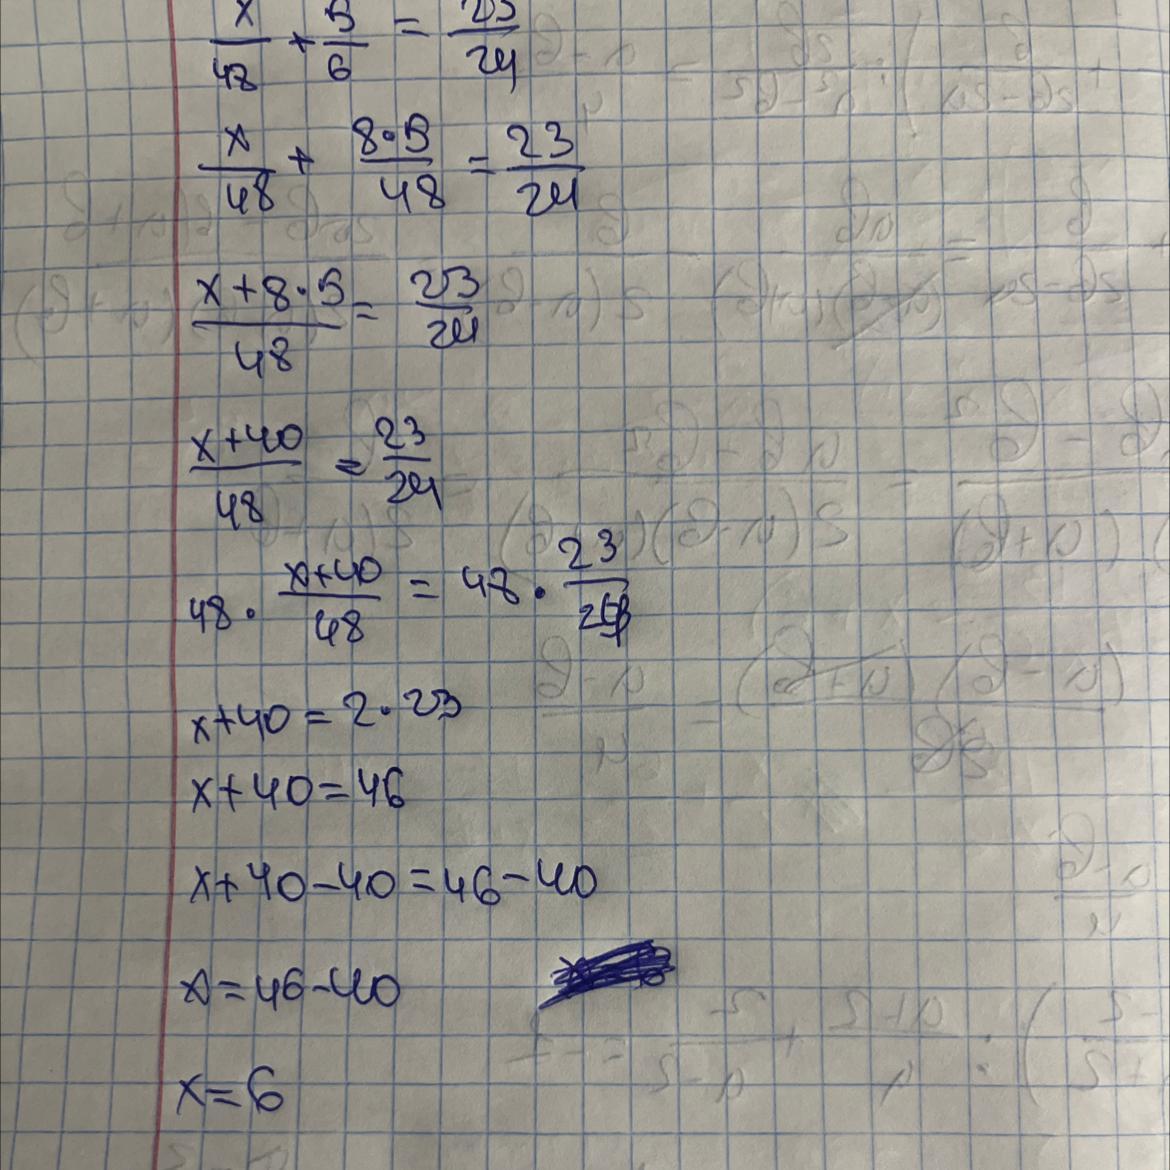 x/48 + 5/6 = 23/24
x/48 + 8·5/48 = 23/24
x+8·5/48 = 23/24
x+40/48 = 23/24
48· x+40/48 = 48· 23/24
x+40=2·23
x+40=46
x+40-40=46-40
x=46-40
x=6